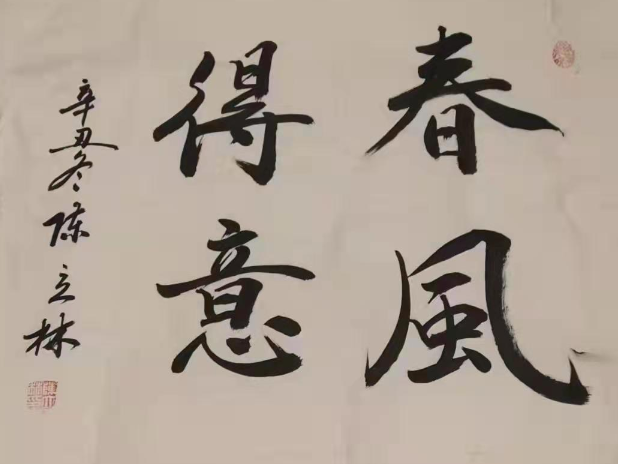 春風
得意
辛丑冬陈立林